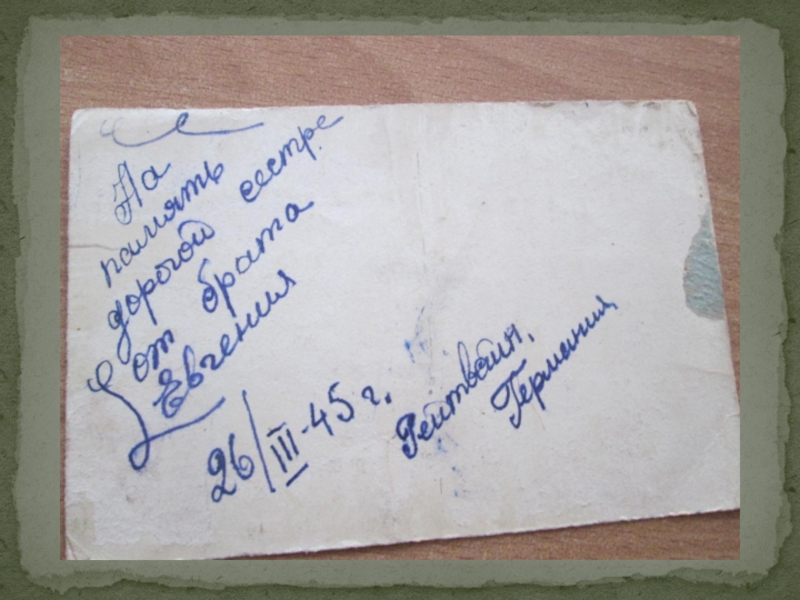 На
память
дорогой сестре
от брата
Евгения
26/III-45 г.
Рейтвайн,
Германия